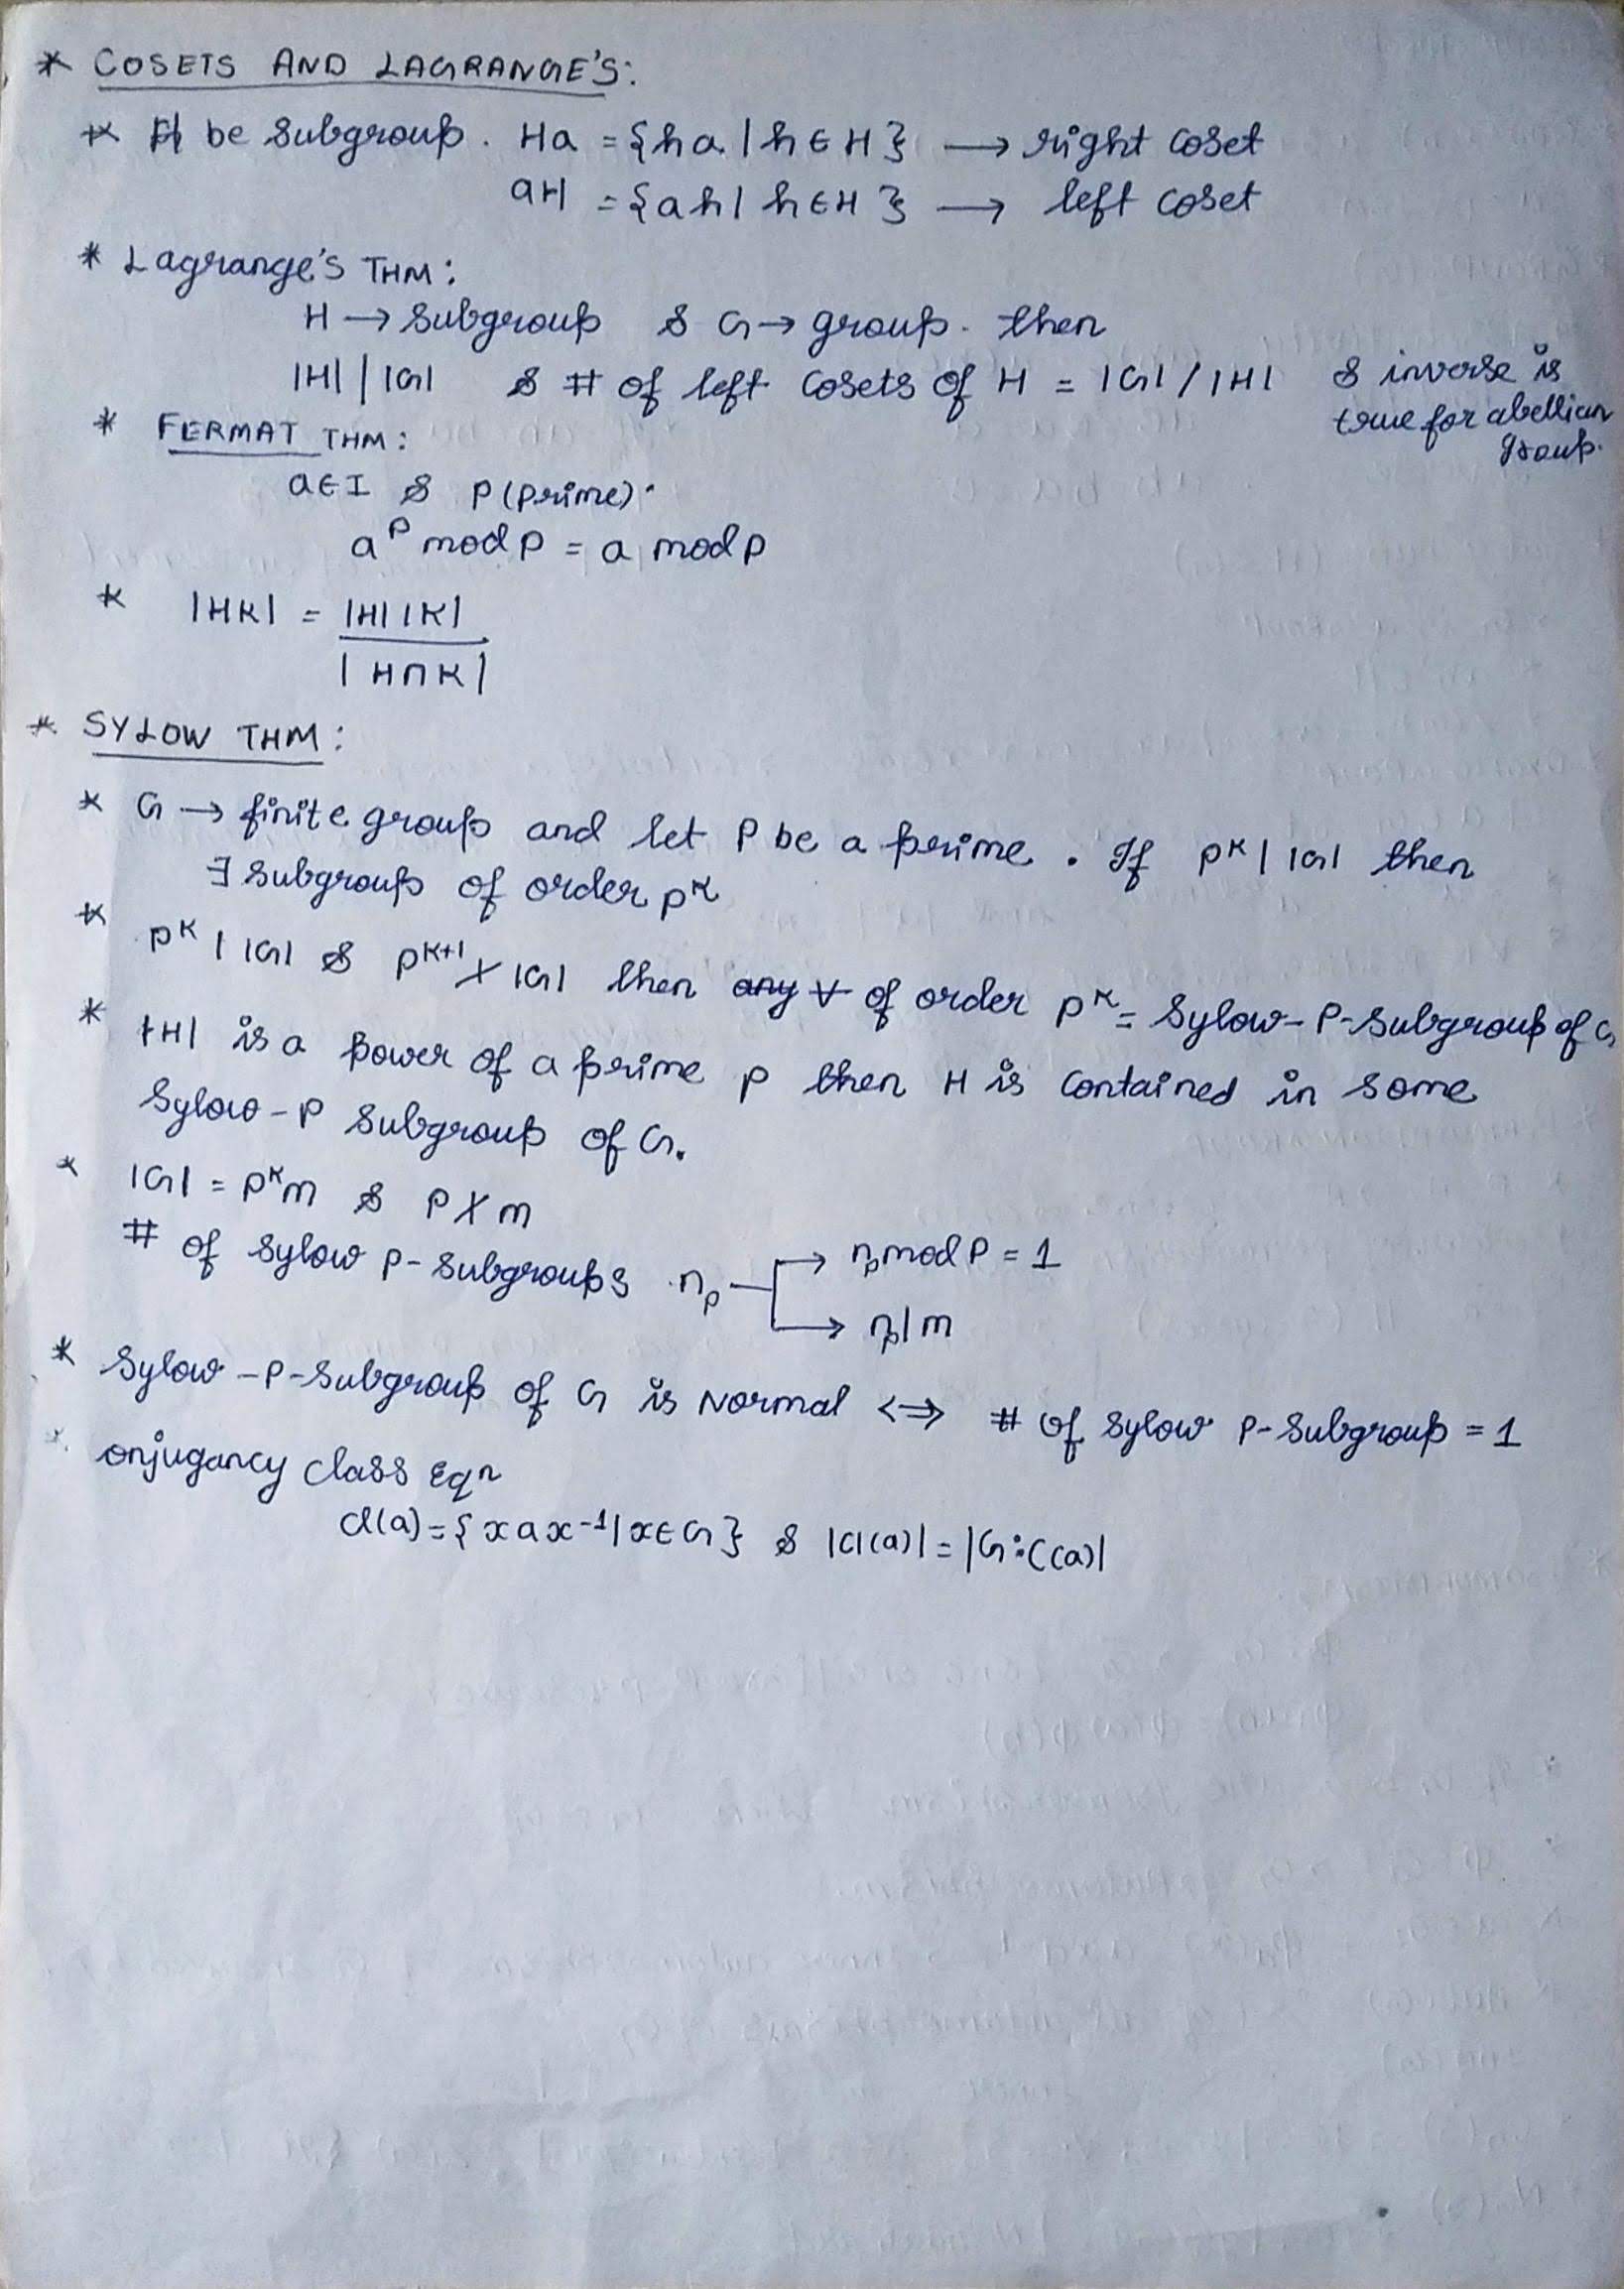 * COSETS AND LAGRANGE'S:
* H be subgroup. Ha = {ha | h ∈ H} → right coset
aH = {ah | h ∈ H} → left coset
* Lagrange's THM:
H → subgroup & G → group. then
|H| | |G| & # of left cosets of H = |G| / |H| & inverse is
true for abellian
group.
* FERMAT THM:
a ∈ I & P (prime).
a^p mod p = a mod p
* |HK| = |H| |K|
|H ∩ K|
* SYLOW THM:
* G → finite group and let P be a prime. If p^k | |G| then
∃ subgroup of order p^k
* p^k | |G| & p^{k+1} ∤ |G| then any ∀ of order p^k = Sylow-P-Subgroup of G
* |H| is a power of a prime p then H is contained in some
Sylow-P Subgroup of G.
* |G| = p^k m & p ∤ m
# of Sylow p-Subgroups n_p → n_p mod P = 1
→ n_p | m
* Sylow-P-Subgroup of G is Normal ⟺ # of Sylow P-Subgroup = 1
* onjugancy class Eqn
cl(a) = {x a x^{-1} | x ∈ G} & |cl(a)| = |G : C(a)|